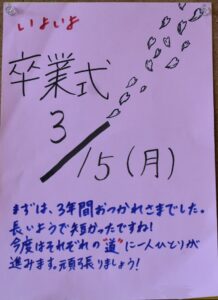 いよいよ
卒業式
3/15(月)
まずは、3年間おつかれさまでした。
長いようで短かったですね!
今度はそれぞれの"道"に一人ひとりが
進みます。頑張りましょう!